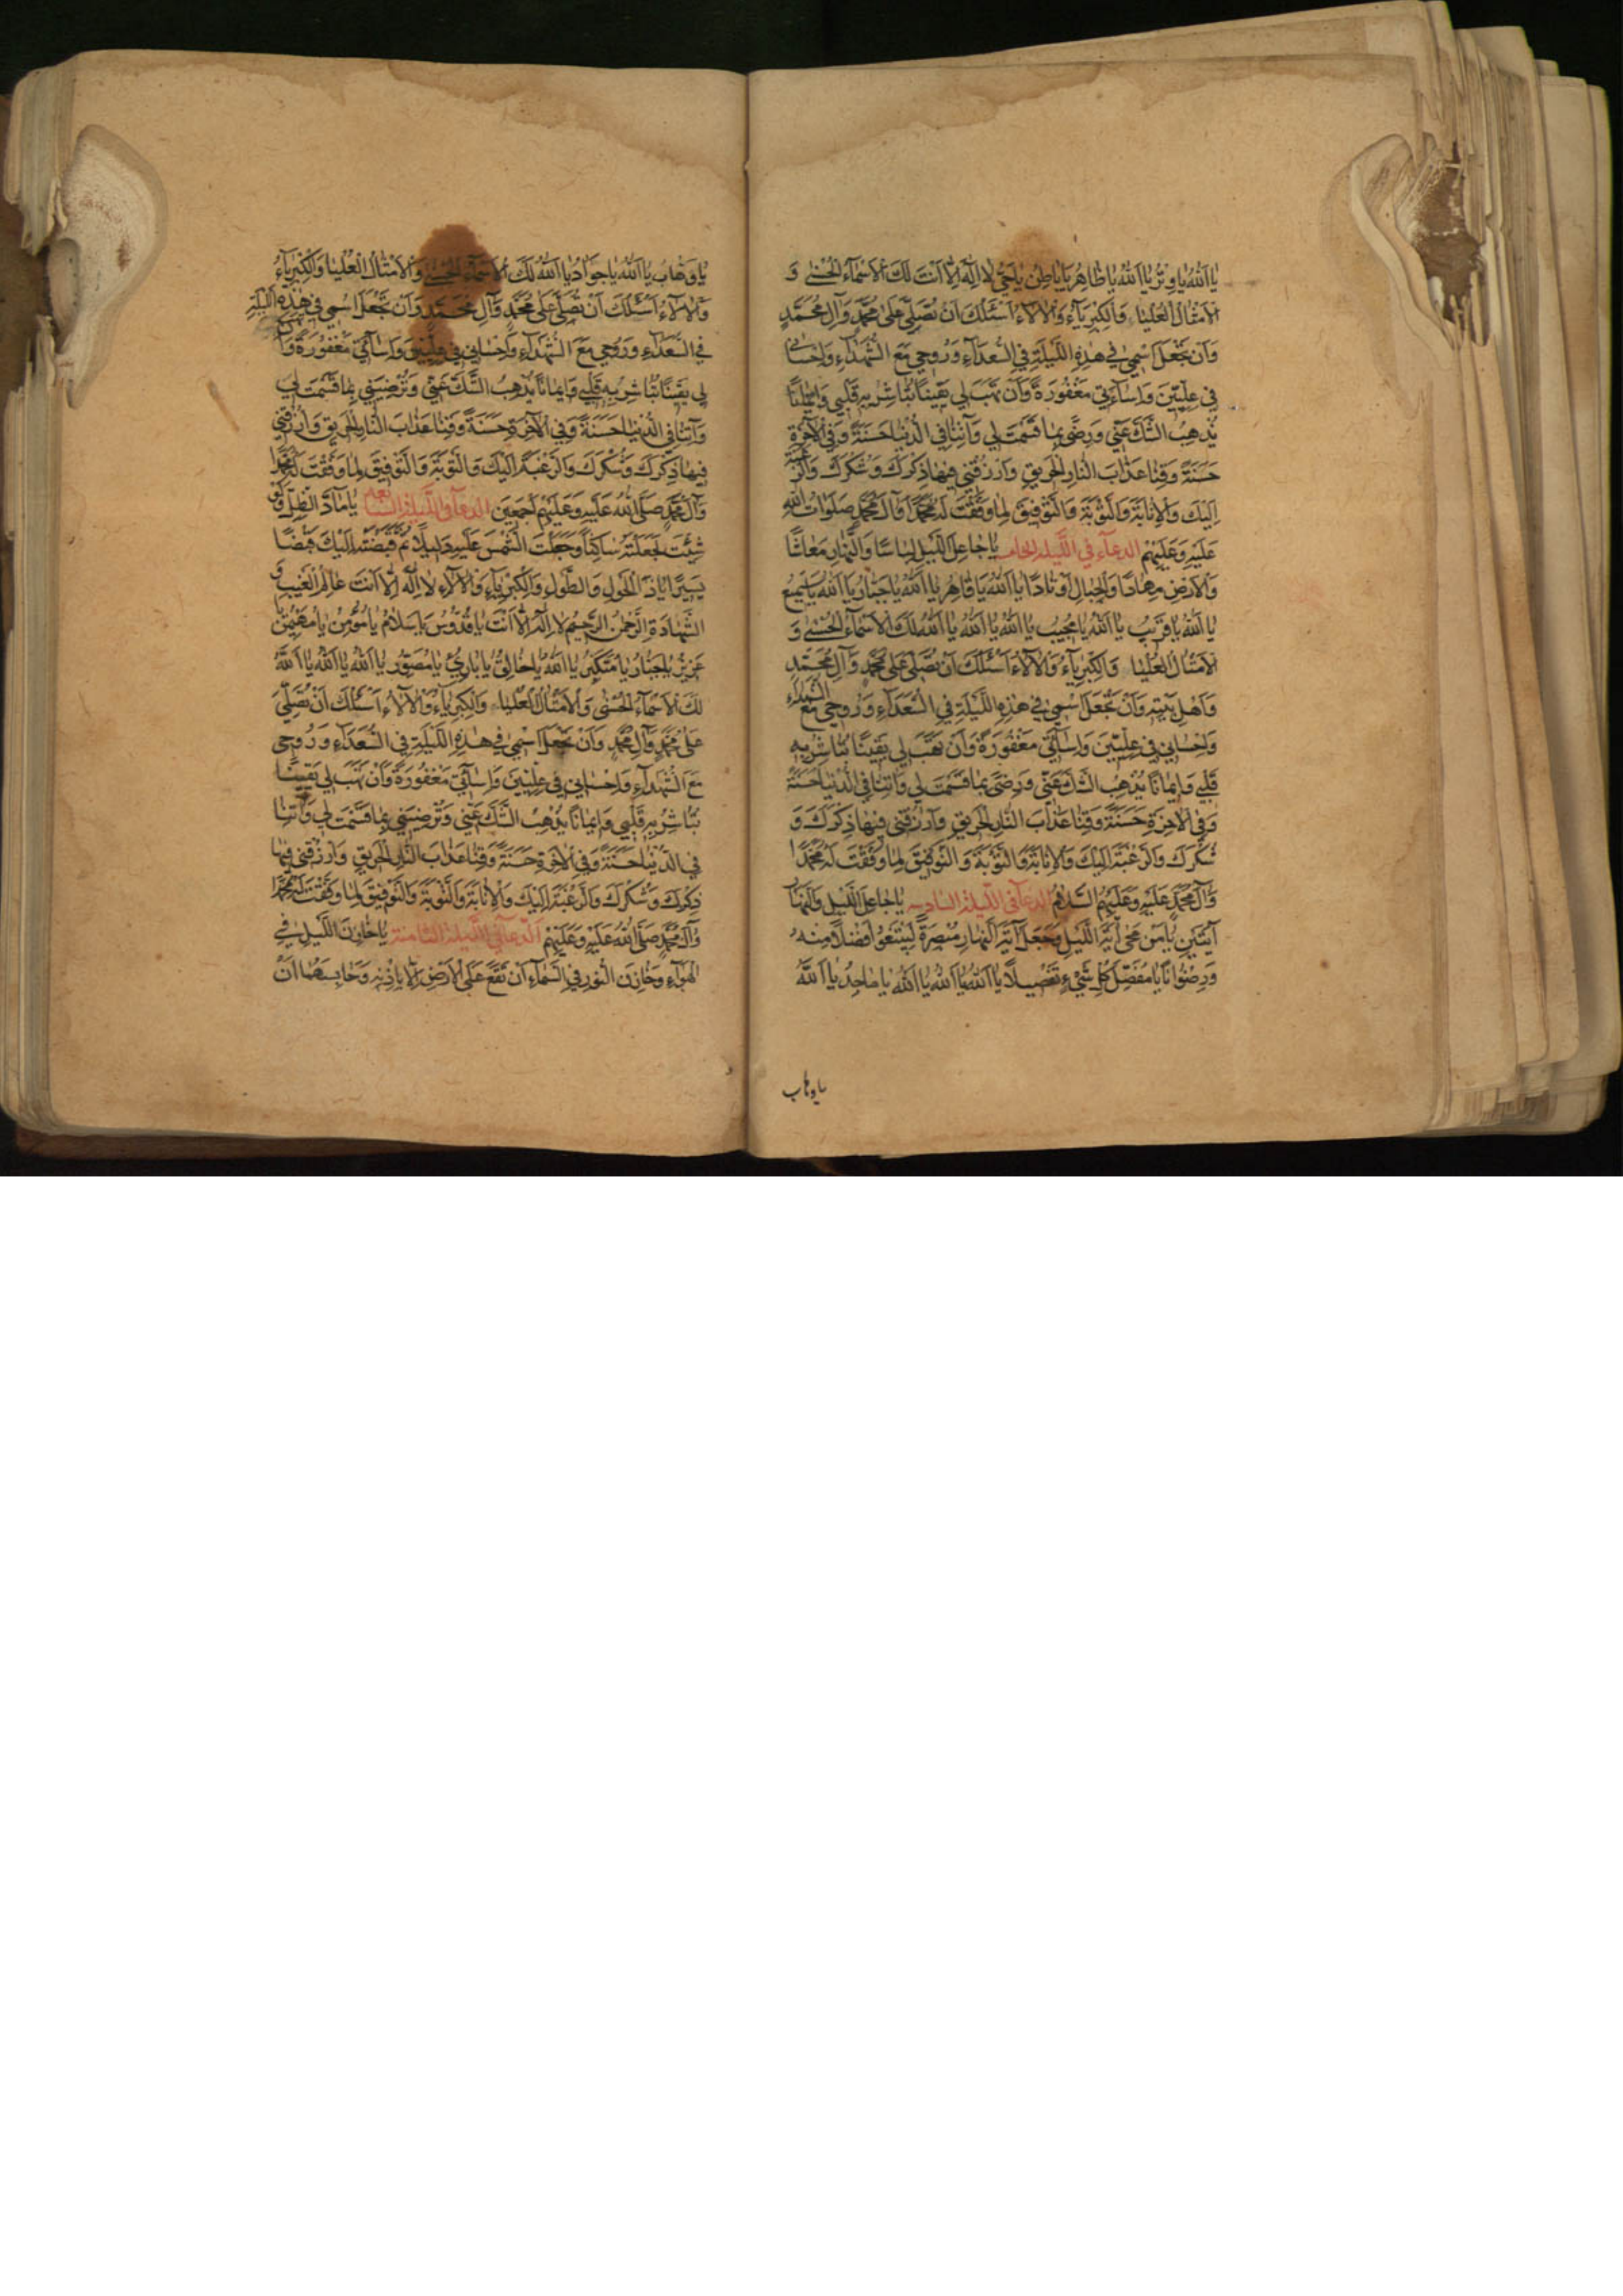 يا الله يا وتر يا الله يا ظاهر يا باطن يا حي لا اله الا انت لك الاسماء الحسنى و
الامثال العليا والكبرياء والالاء اسئلك ان تصلي على محمد وآل محمد
وان تجعل اسمي في هذه الليلة في السعداء وروحي مع الشهداء واحساني
في عليين واساءتي مغفورة وان تهب لي يقينا تباشر به قلبي وايمانا
يذهب الشك عني ورضى بما قسمت لي وآتنا في الدنيا حسنة وفي الآخرة
حسنة وقنا عذاب النار الحريق وارزقني فيها ذكرك وشكرك والرغبة
اليك والانابة والتوبة والتوفيق لما وفقت له محمدا وآل محمد صلوات الله
عليه وعليهم الدعاء في الليلة الخامسة يا جاعل الليل لباسا والنهار معاشا
والارض مهادا والجبال اوتادا يا الله يا قاهر يا الله يا جبار يا الله يا سميع
يا الله يا قريب يا الله يا مجيب يا الله يا الله يا الله لك الاسماء الحسنى و
الامثال العليا والكبرياء والالاء اسئلك ان تصلي على محمد وآل محمد
واهل بيته وان تجعل اسمي في هذه الليلة في السعداء وروحي مع الشهداء
واحساني في عليين واساءتي مغفورة وان تهب لي يقينا تباشر به
قلبي وايمانا يذهب الشك عني ورضى بما قسمت لي وآتنا في الدنيا حسنة
وفي الآخرة حسنة وقنا عذاب النار الحريق وارزقني فيها ذكرك و
شكرك والرغبة اليك والانابة والتوبة والتوفيق لما وفقت له محمدا
وآل محمد عليه وعليهم السلام الدعاء في الليلة السادسة يا جاعل الليل والنهار
آيتين يا من محى آية الليل وجعل آية النهار مبصرة ليبتغوا فضلا منه
ورضوانا يا مفصل كل شيء تفصيلا يا الله يا الله يا الله يا ماجد يا الله
يا وهاب
يا وهاب يا الله يا جواد يا الله لك الاسماء الحسنى والامثال العليا والكبرياء
والالاء اسئلك ان تصلي على محمد وآل محمد وان تجعل اسمي في هذه الليلة
في السعداء وروحي مع الشهداء واحساني في عليين واساءتي مغفورة وان تهب
لي يقينا تباشر به قلبي وايمانا يذهب الشك عني وترضيني بما قسمت لي
وآتنا في الدنيا حسنة وفي الآخرة حسنة وقنا عذاب النار الحريق وارزقني
فيها ذكرك وشكرك والرغبة اليك والتوبة والتوفيق لما وفقت له محمدا
وآل محمد صلى الله عليه وعليهم اجمعين الدعاء في الليلة السابعة يا ماد الظل ولو
شئت لجعلته ساكنا وجعلت الشمس عليه دليلا ثم قبضته اليك قبضا
يسيرا يا ذا الحول والطول والكبرياء والالاء لا اله الا انت عالم الغيب و
الشهادة الرحمن الرحيم لا اله الا انت يا قدوس يا سلام يا مؤمن يا مهيمن يا
عزيز يا جبار يا متكبر يا الله يا خالق يا بارئ يا مصور يا الله يا الله يا الله
لك الاسماء الحسنى والامثال العليا والكبرياء والالاء اسئلك ان تصلي
على محمد وآل محمد وان تجعل اسمي في هذه الليلة في السعداء وروحي
مع الشهداء واحساني في عليين واساءتي مغفورة وان تهب لي يقينا
تباشر به قلبي وايمانا يذهب الشك عني وترضيني بما قسمت لي وآتنا
في الدنيا حسنة وفي الآخرة حسنة وقنا عذاب النار الحريق وارزقني فيها
ذكرك وشكرك والرغبة اليك والانابة والتوبة والتوفيق لما وفقت له محمدا
وآل محمد صلى الله عليه وعليهم الدعاء في الليلة الثامنة يا خازن الليل في
الهواء وخازن النور في السماء ان تقع على الارض الا باذنه وحابسهما ان